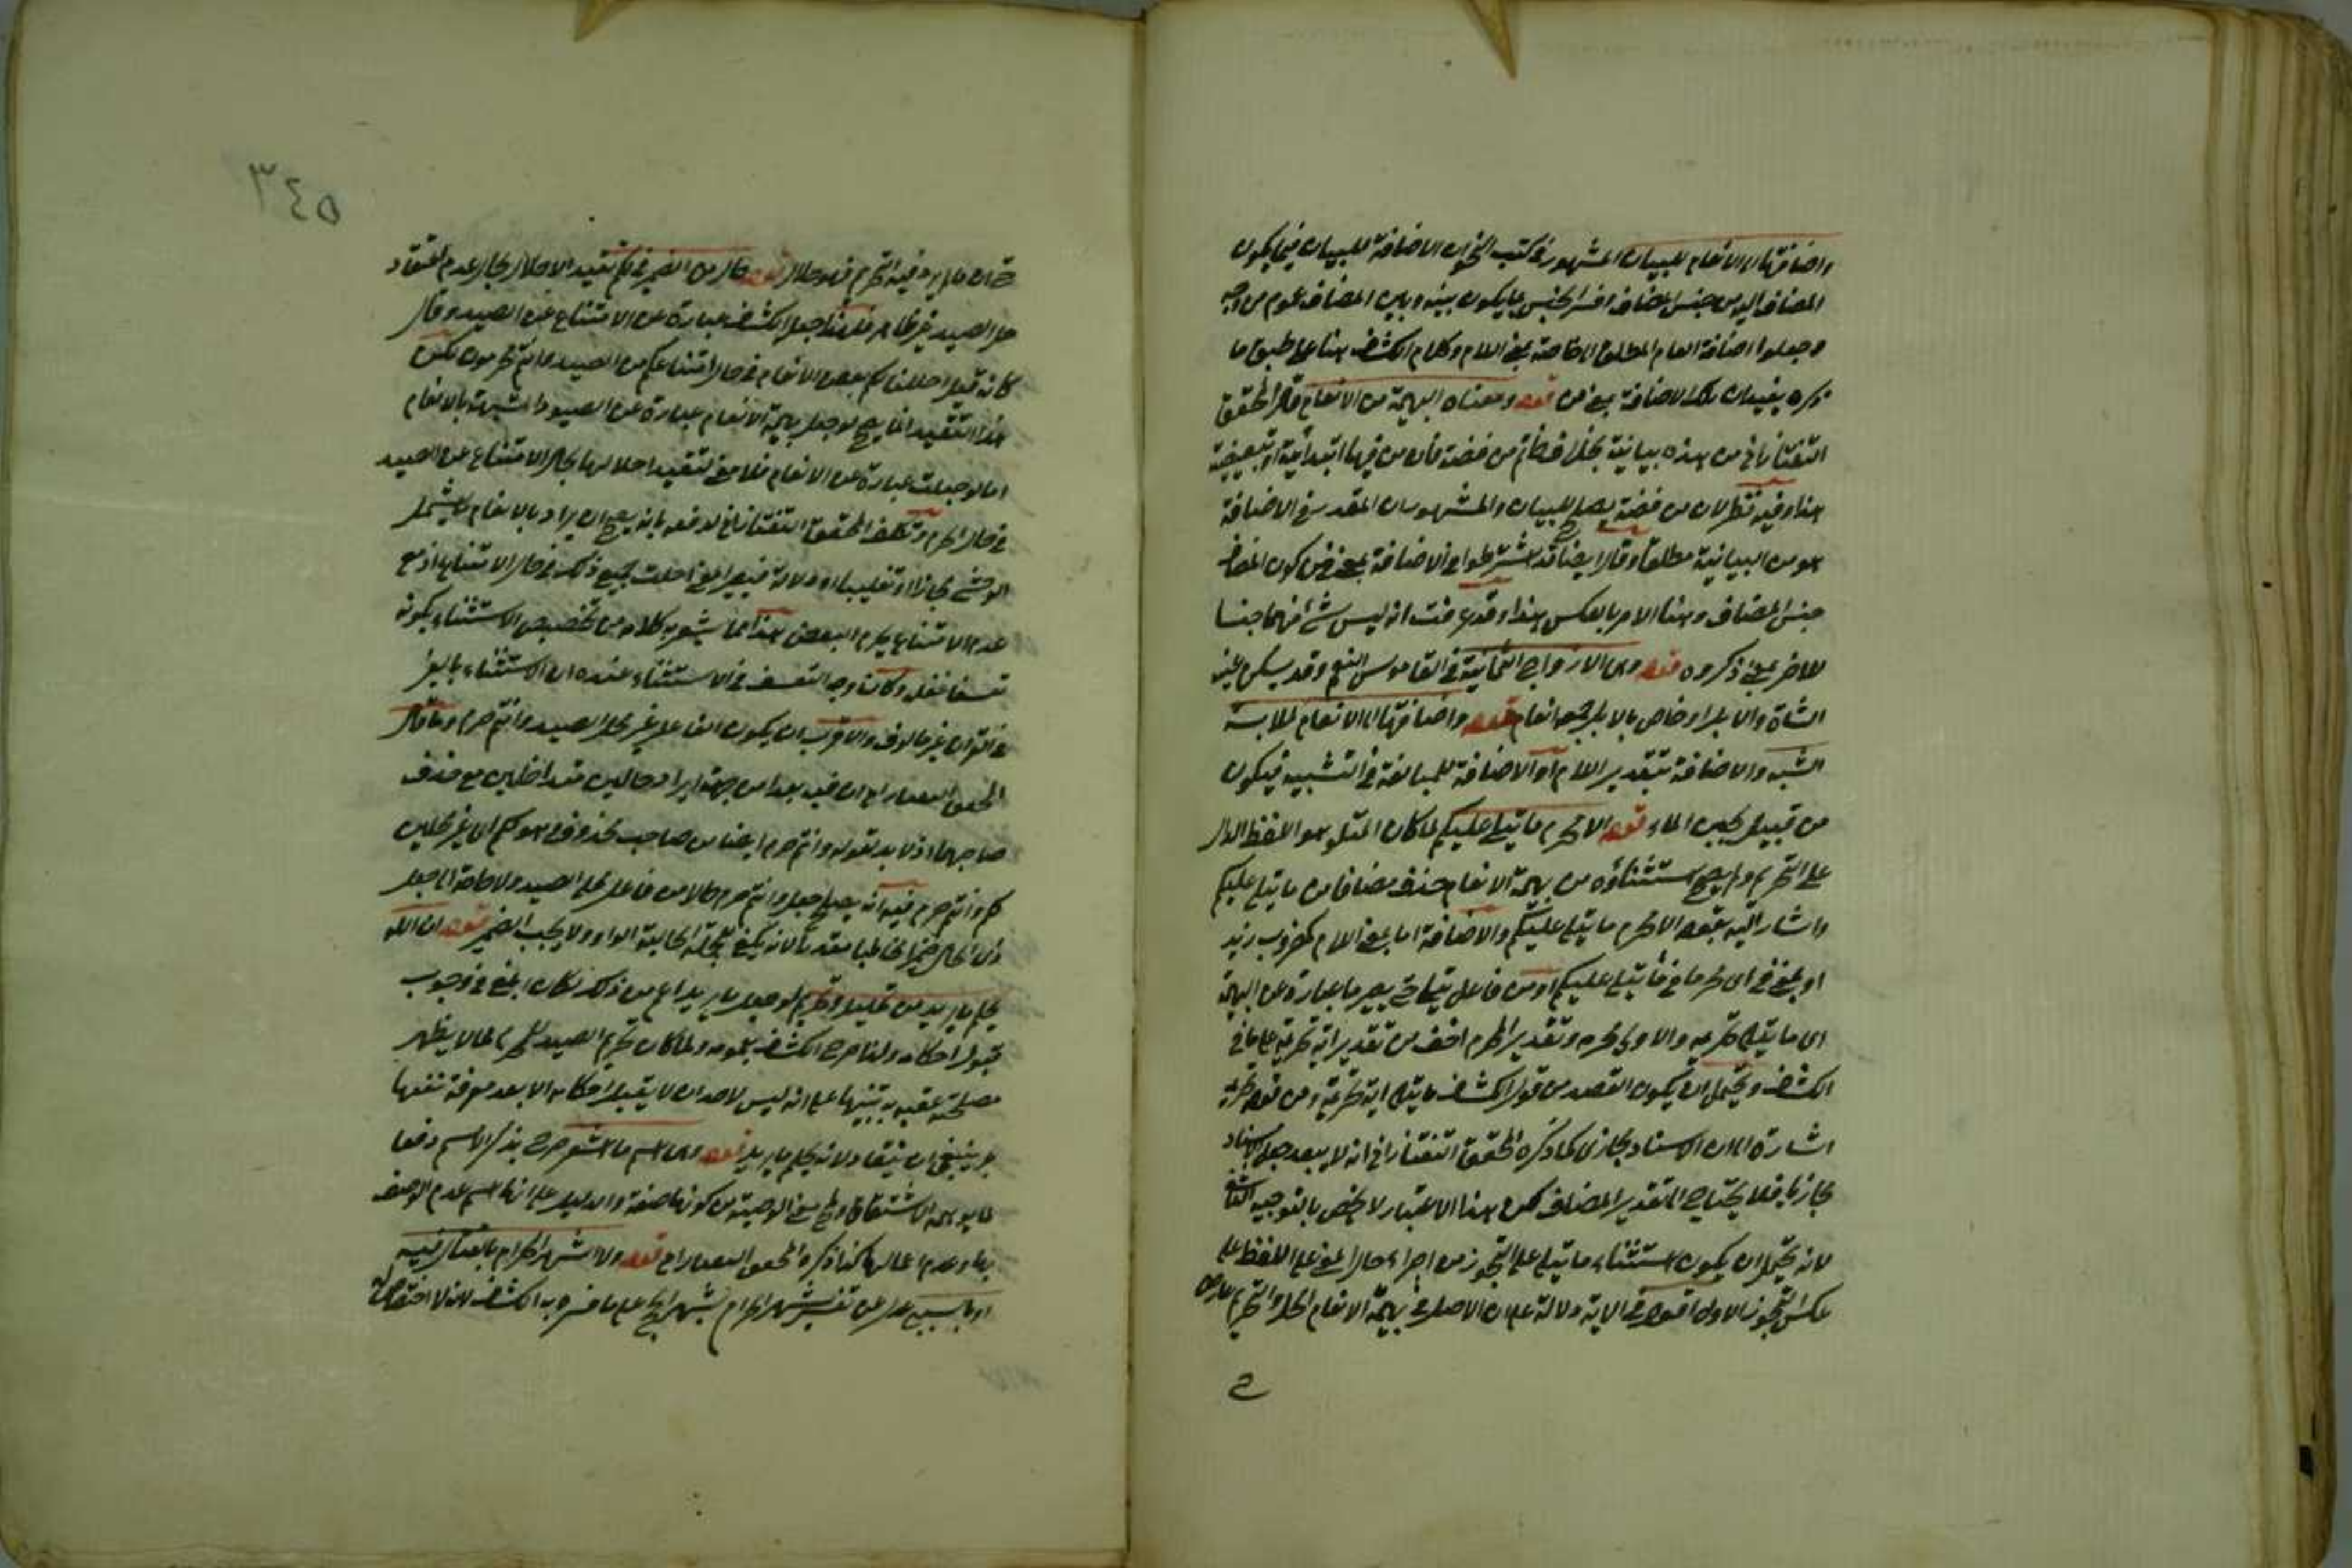 واضافتها الى الانعام للبيان المشهور في كتب النحو ان الاضافة للبيان فيما يكون
المضاف اليه من جنس المضاف وفسر الجنس بما يكون بينه وبين المضاف عموم من وجه
وجعلوا اضافة العام المطلق الى الخاص بمعنى اللام وكلام الكشاف هنا على طبق ما
ذكره يفيد ان تلك الاضافة بمعنى من قوله ومعناه البهيمة من الانعام قال المحقق
التفتازاني من هذه بيانية بخلاف خاتم من فضة فان من فيها ابتدائية او تبعيضية
هذا وفيه نظر لان من فضة يصلح للبيان والمشهور ان المقدر في الاضافة
هو من البيانية مطلقا وقال ايضا قد اشترطوا في الاضافة بمعنى من كون المضاف
جنس المضاف وهنا الامر بالعكس هذا وقد عرفت انه ليس شئ منهما جنسا
للاخر بمعنى ذكروه قوله وهي الازواج الثمانية في القاموس النعم وقد يسكن عينه
الشاة والابل او خاص بالابل جمع انعام قوله واضافتها الى الانعام لملابسة
الشبه والاضافة بتقدير اللام او الاضافة للمبالغة في التشبيه فيكون
من قبيل لجين الماء قوله الا محرم ما يتلى عليكم لما كان المتلو هو اللفظ الدال
على التحريم ولم يصح استثناؤه من بهيمة الانعام حذف مضافا من ما يتلى عليكم
واشار اليه بقوله الا محرم ما يتلى عليكم والاضافة اما بمعنى اللام كمضروب زيد
او بمعنى في اى محرما في ما يتلى عليكم او من فاعل يتلى حتى يصير ما عبارة عن البهيمة
اى ما يتلى تحريمه والاولى محرم وتقدير المحرم اخف من تقدير آية تحريمه على ما في
الكشاف ويحتمل ان يكون القصد من قول الكشاف ما يتلى آية تحريمه ومن قوله تحريمه
اشارة الى ان الاسناد مجازي كما ذكره المحقق التفتازاني انه لا يبعد جعل الاسناد
مجازيا فلا يحتاج الى تقدير المضاف لكن هذا الاعتبار لا يختص بالتوجيه الثاني
لانه يحتمل ان يكون استثناء ما يتلى على التجوز من اجراء حال المعنى على اللفظ على
عكس التجوز الاول اقول في الآية دلالة على ان الاصل في بهيمة الانعام الحل والتحريم عارض
ح
٥٤٣
حتى ان ما لم يرد فيه التحريم فهو حلال قوله حال من الضمير في لكم تقييد الاحلال بحال عدم اعتقاد
حل الصيد غير ظاهر فلهذا جعل الكشاف عبارة عن الامتناع عن الصيد وقال
كانه قيل احللنا لكم بعض الانعام في حال امتناعكم من الصيد وانتم محرمون لكن
هذا التقييد انما يصح لو جعل بهيمة الانعام عبارة عن الصيود المشبهة بالانعام
اما لو جعلت عبارة عن الانعام فلا معنى لتقييد احلالها بحال الامتناع عن الصيد
في حال الحرم وتكلف المحقق التفتازاني لدفعه بانه يصح ان يراد بالانعام ما يشمل
الوحشي مجازا او تغليبا او دلالة فيصير المعنى احلت جميع ذلك في حال الامتناع اذ مع
عدم الامتناع يحرم البعض هذا مما يشوبه كلام من تخصيص الاستثناء بكونه
تعسفا فقط وكان وجه التعسف في الاستثناء عنده ان الاستثناء بالغير
في القرآن غير مالوف والاقرب ان يكون انتصاب غير محلي الصيد وانتم حرم وما قال
المحقق ان فيه بعدا من جهة ايراد حالين متداخلين مع حذف
صاحبهما اذ لا بد لقوله وانتم حرم ايضا من صاحب محذوف هو لكم اى غير محلين
لكم وانتم حرم فيه انه يصلح جعل وانتم حرم حالا من فاعل محلي الصيد ولا حاجة الى جعل
ذى الحال ضميرا مخاطبا مقدرا لانه يكفي للجملة الحالية الواو ولا يجب الضمير قوله ان الله
يحكم ما يريد من تحليل وتحريم لو جعل ما يريد اعم من ذلك لكان ابلغ في وجوب
قبول احكامه ولذا صرح الكشاف بعمومه ولما كان تحريم الصيد للمحرم مما لا يظهر
مصلحة عقبه به تنبيها على انه ليس لاحد ان لا يقبل احكامه الا بعد معرفة نفعها
بل ينبغي ان ينقاد لانه يحكم ما يريد قوله وهي اسم ما اشعر صرح بذكر الاسم دفعا
لما يوهمه الاشتقاق من كونها صفة والدليل على انها اسم عدم الوصف
بها وعدم اعمالها كذا ذكره المحقق قوله ولا الشهر الحرام بالقتال فيه
تفسير الشهر الحرام بشهر الحج على ما فسره به الكشاف لانه لا اختصاص